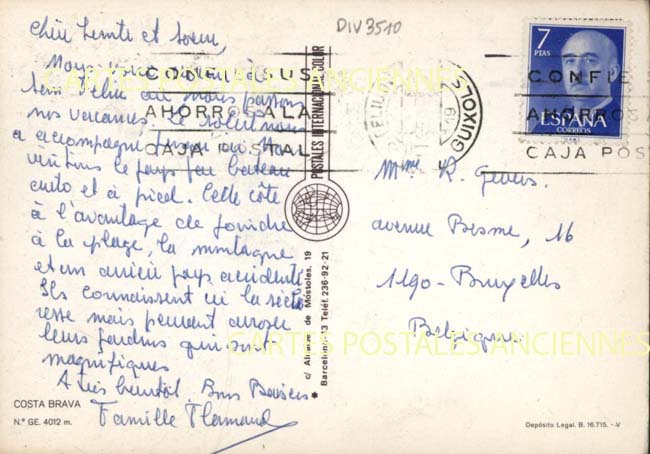 DIV 3510
et
Nous
CONFIE SUS
Feliu où nous passons
nos vacances. Le soleil nous
AHORROS A LA
a accompagné jusqu'ici. Nous
CAJA POSTAL
visitons le pays par bateau
auto et à pied. Cette côte
à l'avantage de joindre
à la plage, la montagne
et un arrière pays accidenté
Ils connaissent ici la séche
resse mais peuvent arroser
leurs jardins qui sont
magnifiques
A très bientôt. Bons Baisers
Famille Flamand
COSTA BRAVA
N.º GE. 4012 m.
POSTALES INTERNACIONAL COLOR
c/ Alvarez de Móstoles, 19
Barcelona-13 Teléf. 236-92-21
FELIU
GUIXOLS
7
PTAS
ESPAÑA
CORREOS
CONFIE
AHORROS
CAJA POS
Mme R. Geuens.
avenue Besme, 16
1190-Bruxelles
Belgique
Depósito Legal. B. 16.715. - V
CARTES POSTALES ANCIENNES
CARTES POSTALES ANCIENNES